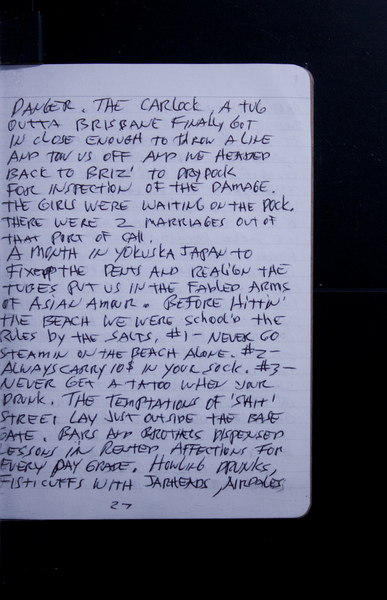 DANGER. THE CARLOCK, A TUG
OUTTA BRISBANE FINALLY GOT
IN CLOSE ENOUGH TO THROW A LINE
AND TOW US OFF AND WE HEADED
BACK TO BRIZ' TO DRYDOCK
FOR INSPECTION OF THE DAMAGE.
THE GIRLS WERE WAITING ON THE DOCK.
THERE WERE 2 MARRIAGES OUT OF
THAT PORT OF CALL.
A MONTH IN YOKUSKA JAPAN TO
FIX THE DENTS AND REALIGN THE
TUBES PUT US IN THE FABLED ARMS
OF ASIAN AMOUR. BEFORE HITTIN'
THE BEACH WE WERE SCHOOL'D THE
RULES BY THE SALTS, #1- NEVER GO
STEAMIN ON THE BEACH ALONE. #2-
ALWAYS CARRY 10$ IN YOUR SOCK. #3-
NEVER GET A TATOO WHEN YOUR
DRUNK. THE TEMPTATIONS OF 'SHIT'
STREET LAY JUST OUTSIDE THE BASE
GATE. BARS AND BROTHELS DISPENSED
LESSONS IN RENTED AFFECTIONS FOR
EVERY PAY GRADE. HOWLING DRUNKS,
FISTICUFFS WITH JARHEADS, AIRDALES
27